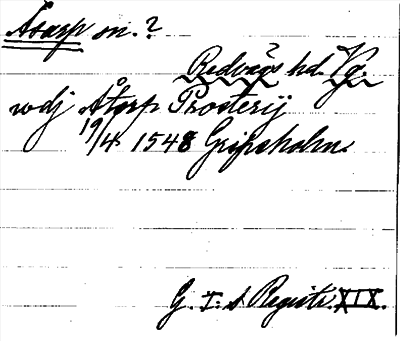 Åsarp sn.?
Redvägs? hd. Vg.
wdj Åtorp Prosterij
19/4 1548 Gripsholm.
G. I. s Registr. XIX.